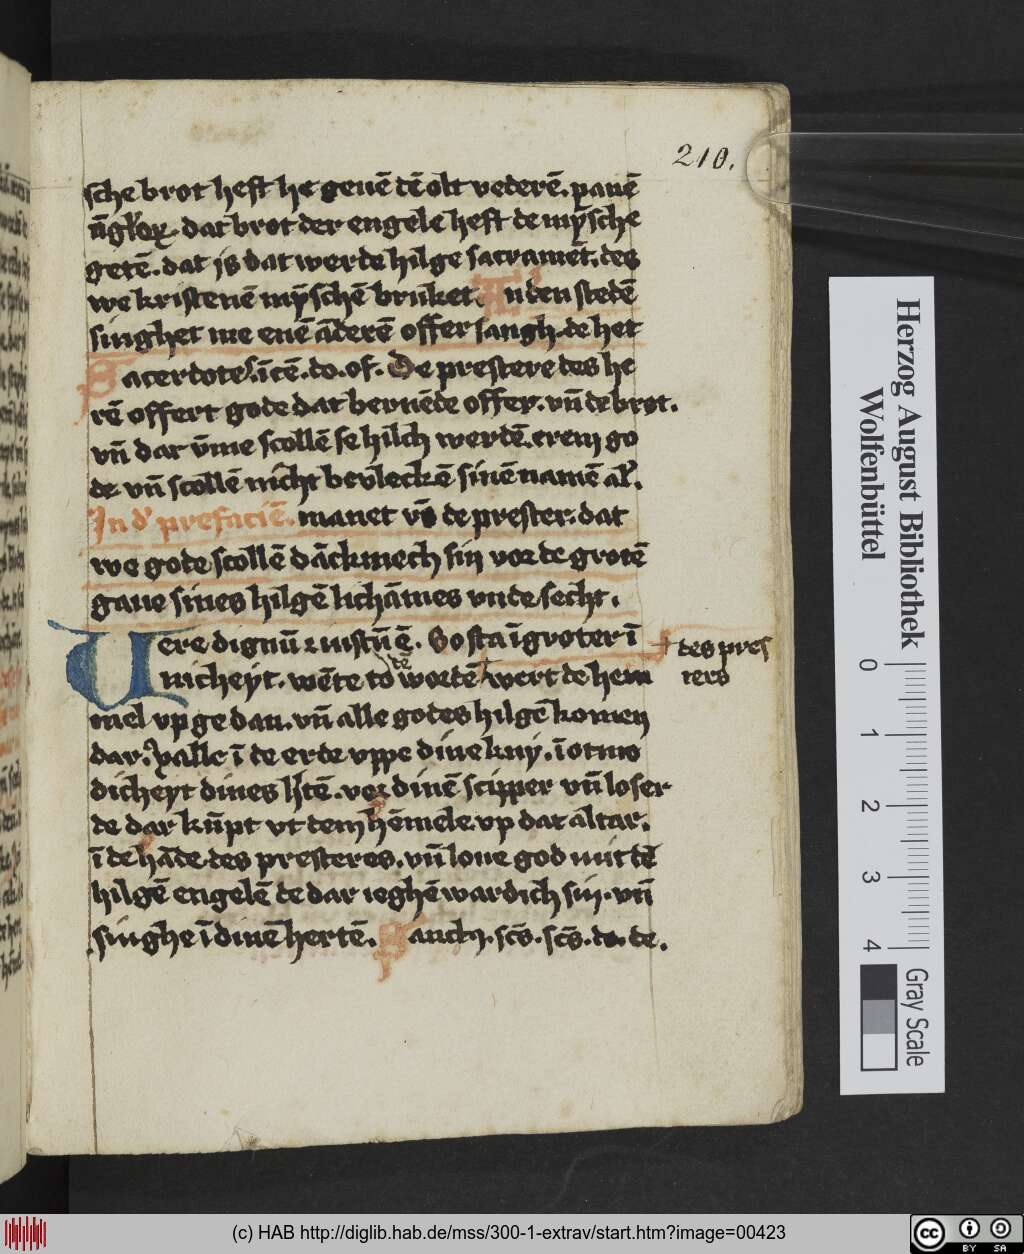 210.
sche brot heft he geuē dē olt vederē. panē
āgl'oꝝ. dat brot der engele heft de mȳsche
getē. dat is dat werde hilge sacramēt. des
we kristenē mȳschē brūket. An den stedē
singhet me enē āderē offer sangh. de het
Sacerdotes. īcē. do. of. De prestere des he
rē offert gode dat bernēde offer. vn̄ de brot.
vn̄ dar v̄me scollē se hilch werdē. erem go
de vn̄ scollē nicht bevleckē sinē namē al'.
In d' prefaciē. manet vs de prester. dat
we gode scollē dāckmech sin vor de grotē
gaue sines hilgē lichāmes vnde secht.
Uere dignū ⁊ iustū ē. So sta ī groter ī
nicheyt. wēte to dē wordē wert de hem
des pres
ters
mel vp ge dan. vn̄ alle godes hilgē komen
dar. valle ī de erde vppe dine kny. ī otmo
dicheyt dines h'tē. vor dinē scipper vn̄ loser
de dar kūpt vt dem hēmele. vp dat altar.
ī de hāde des presteres. vn̄ loue god mit dē
hilgē engelē de dar ieghē wardich sin. vn̄
singhe ī dinē hertē. Sanctꝰ. scs̄. scs̄. do. de.
Herzog August Bibliothek
Wolfenbüttel
0
1
2
3
4
Gray Scale
(c) HAB http://diglib.hab.de/mss/300-1-extrav/start.htm?image=00423
cc BY SA